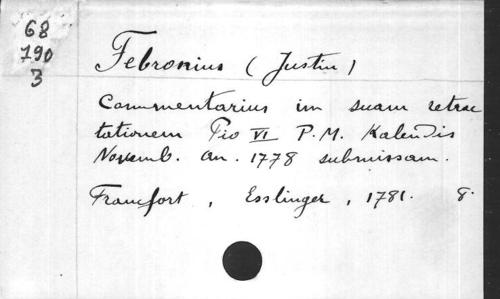 68
790
3
Febronius (Justin)
Commentarius in suam retrac
tationem Pio VI P.M. Kalendis
Novemb. an. 1778 submissam.
Francfort, Esslinger, 1781. 8.